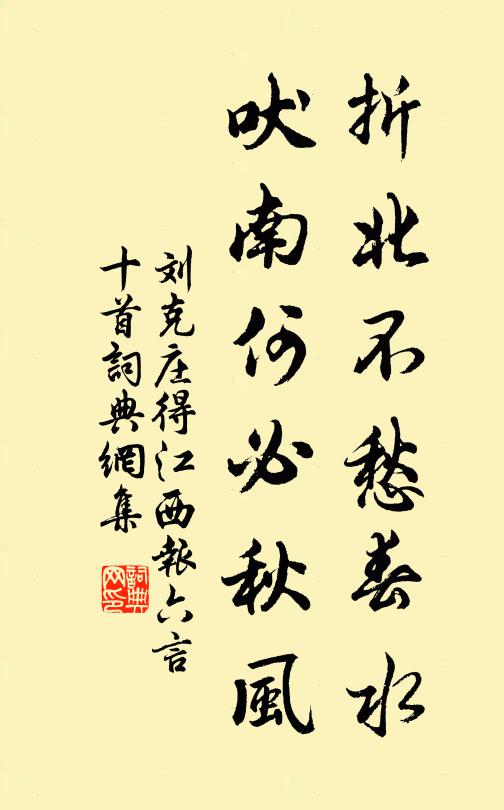 折北不愁春水
吠南何必秋風
刘克庄得江西報六言
十首詞典網集
詞典
网印